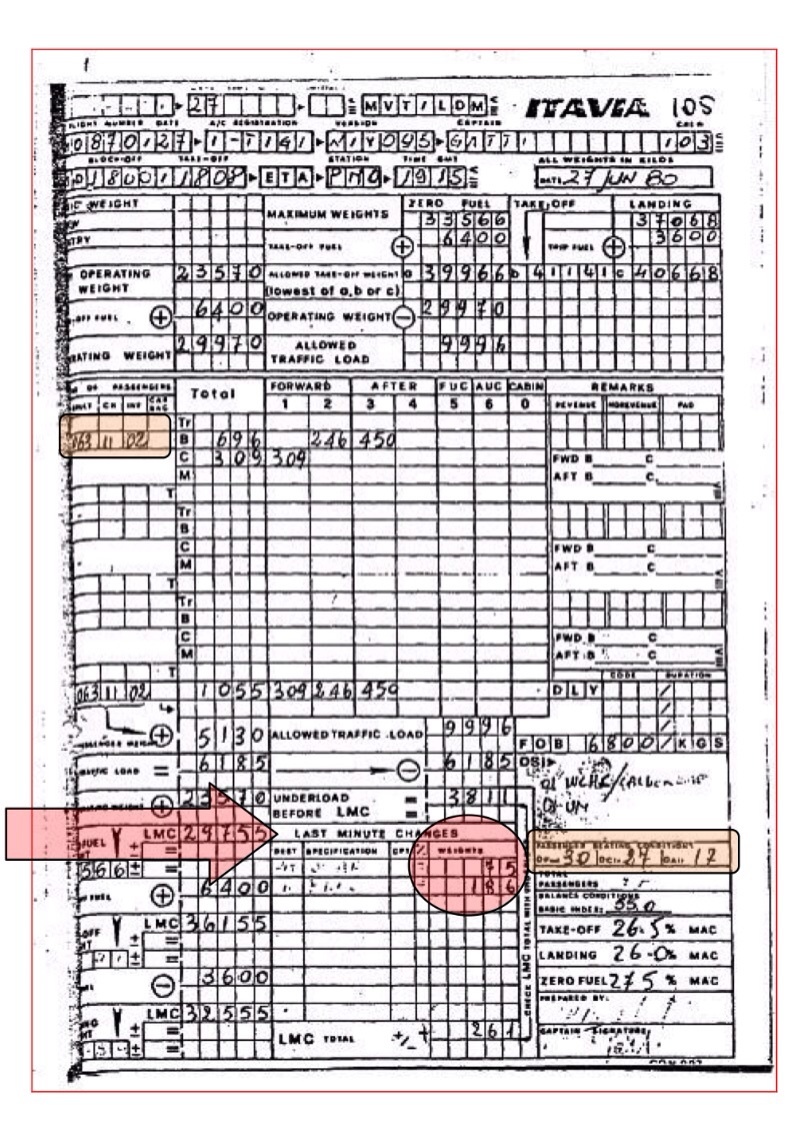 27 MVT/LDM ITAVIA IOS
FLIGHT NUMBER DATE A/C REGISTRATION VERSION CAPTAIN
0870/27 I-TIGI GATTI 103
BLOCK-OFF TAKE-OFF STATION TIME GMT ALL WEIGHTS IN KILOS
01800/1808 ETA PMO 1915 DATE 27 JUN 80
WEIGHT MAXIMUM WEIGHTS ZERO FUEL TAKE OFF LANDING
33566 37068
TAKE-OFF FUEL + 6400 TRIP FUEL + 3600
OPERATING WEIGHT 23570 ALLOWED TAKE-OFF WEIGHT a 39966 b 41141 c 40668
(lowest of a, b or c)
-OFF FUEL + 6400 OPERATING WEIGHT - 29970
WEIGHT 29970 ALLOWED TRAFFIC LOAD 9996
OF PASSENGERS Total FORWARD AFTER FUC AUC CABIN REMARKS
CH INF CAB BAG 1 2 3 4 5 6 0 REVENUE NONREVENUE PAD
Tr
063 11 02 B 696 246 450
C 309 309 FWD B C
M AFT B C
T
Tr
B
C FWD B C
M AFT B C
T
Tr
B
C FWD B C
M AFT B C
T CODE DURATION
063 11 02 1055 309 246 450 DLY /
/
+ 5130 ALLOWED TRAFFIC LOAD 9996 /
FOB 6800/KGS
LOAD = 6185 - 6185 OSI
WCHR/
+ 23570 UNDERLOAD BEFORE LMC = 3811 UM
FUEL LMC 29755 LAST MINUTE CHANGES
DEST SPECIFICATION CPT WEIGHTS PASSENGER SEATING CONDITIONS
± = 75 30 27 17
566 ± = 186 TOTAL PASSENGERS
FUEL + 6400 BALANCE CONDITIONS
BASIC INDEX: 55.0
OFF LMC 36155 TAKE-OFF 26.5% MAC
LANDING 26.0% MAC
- 3600 ZERO FUEL 27.5% MAC
CHECK LMC TOTAL WITH UNDERLOAD
PREPARED BY:
LMC 32555
LMC TOTAL +/- + 261 CAPTAIN SIGNATURE